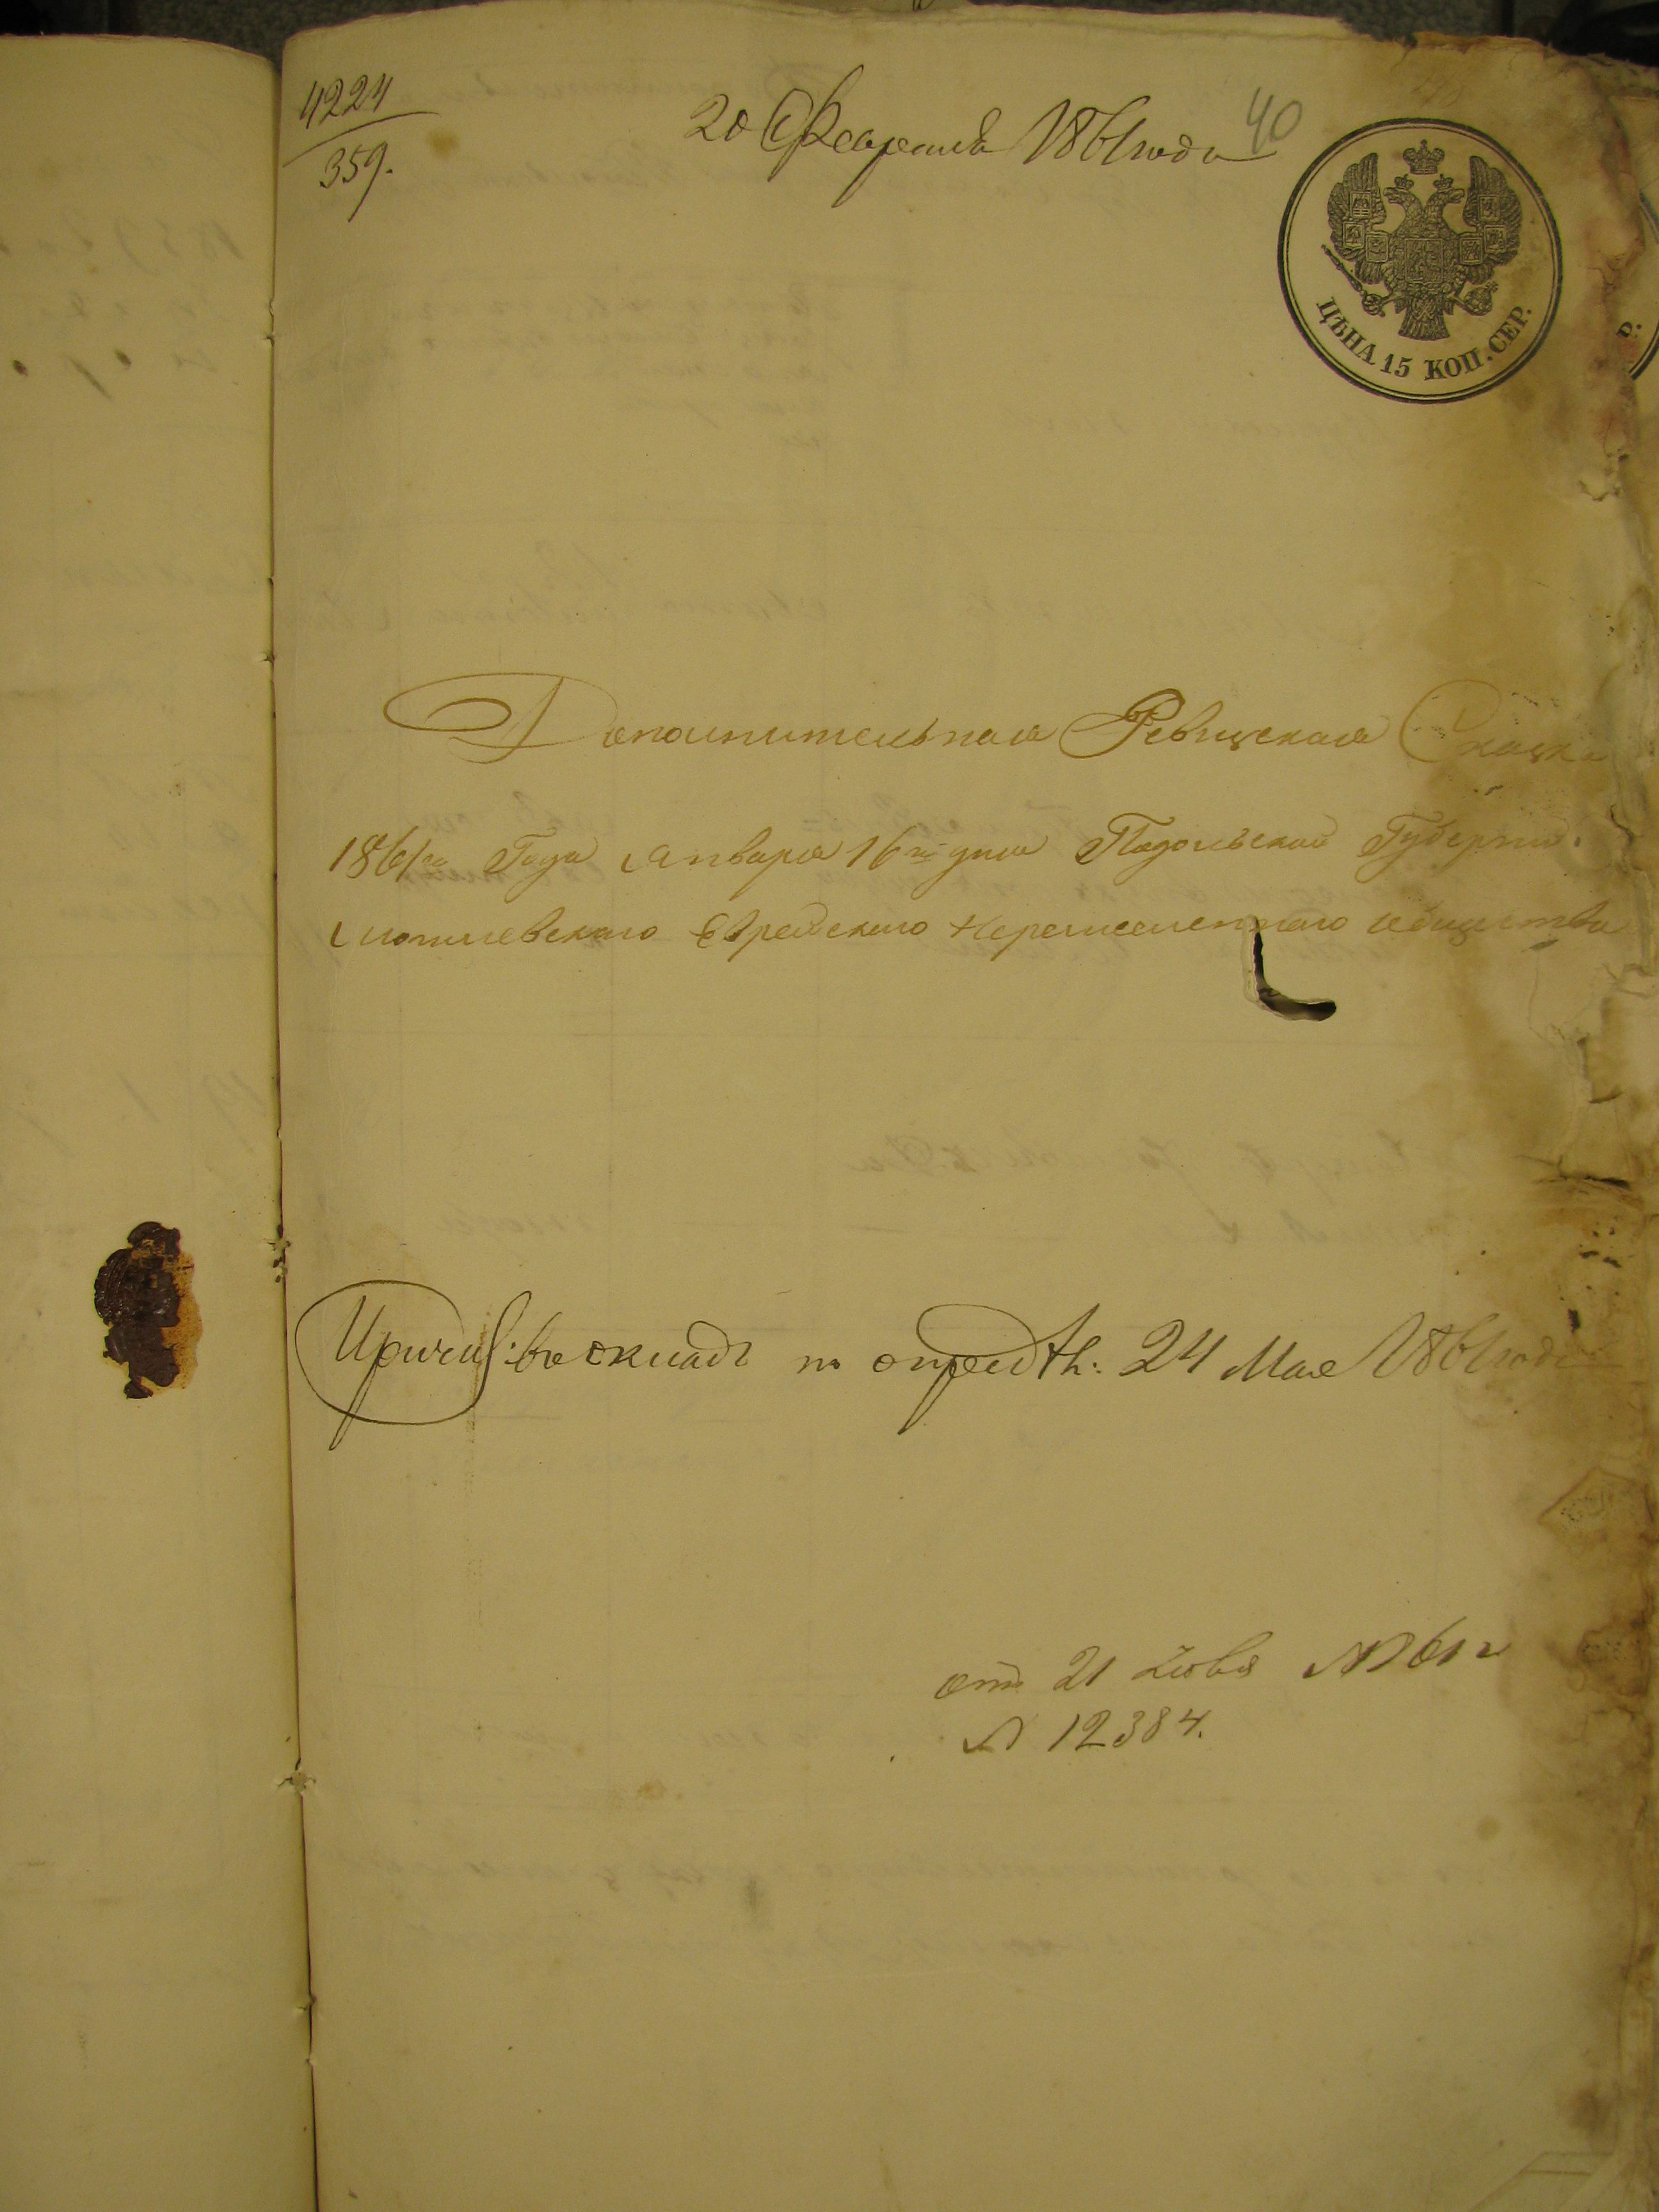 4224
359.
20 Февраля 1861 года
40
ЦѢНА 15 КОП. СЕР.
Дополнительная Ревизская Сказка
1861го Года Января 16го дня Подольской Губерніи
Могилевскаго Еврейскаго общества
Причис: въ окладъ по опредѣл: 24 Мая 1861 года
отъ 21 1861 г
№ 12384.